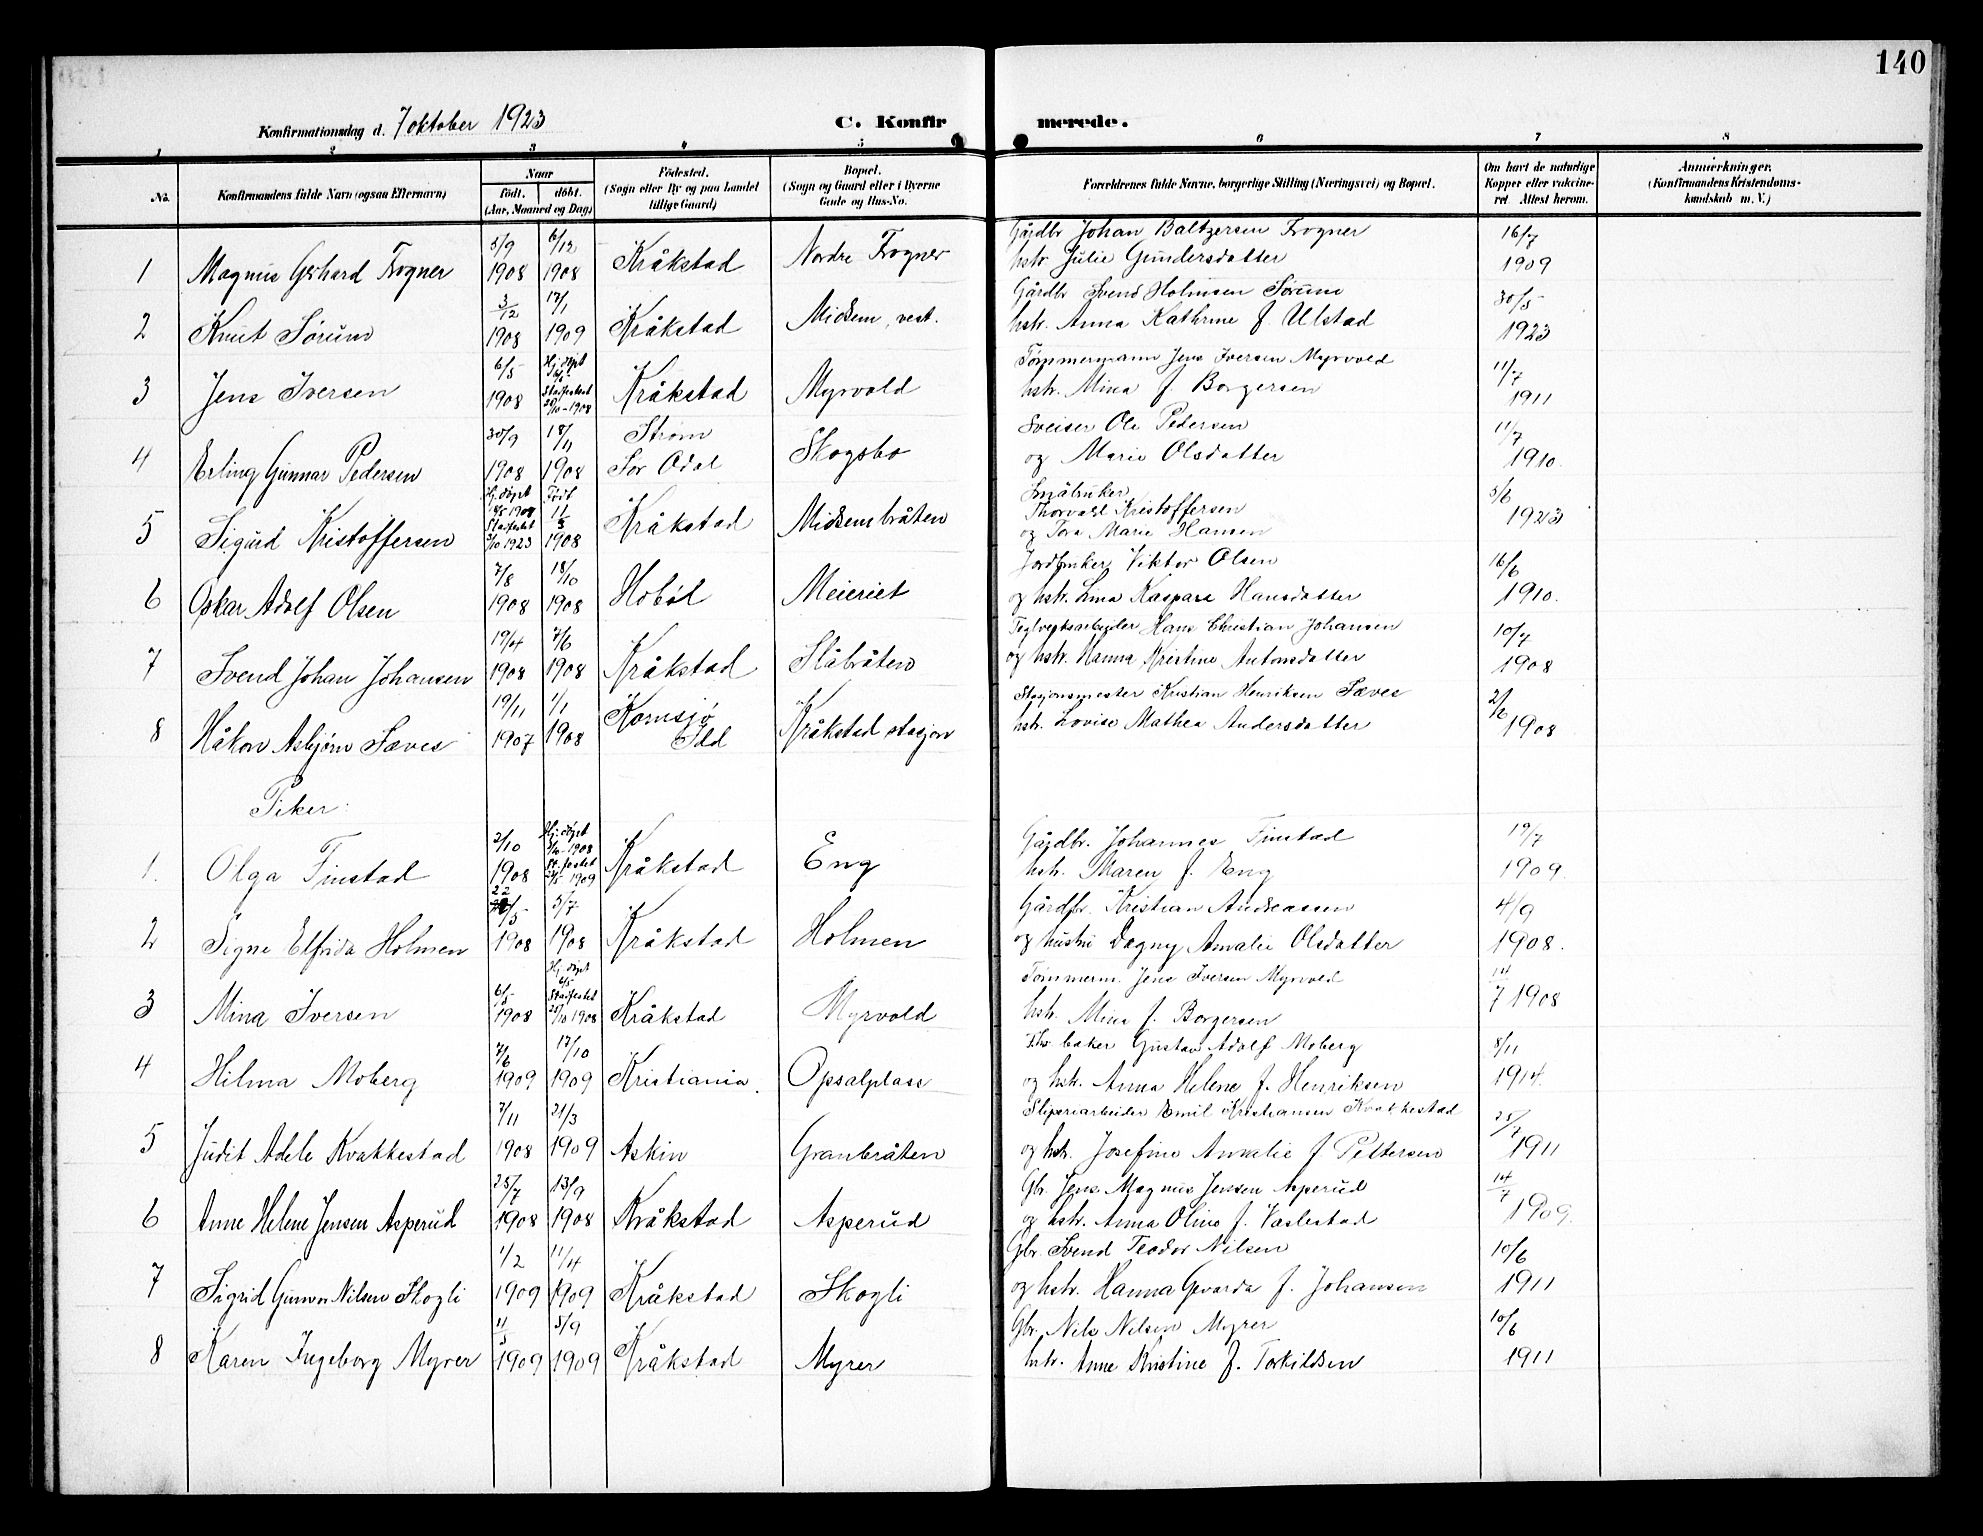 140
Konfirmationsdag d. 7 oktober 1923
C. Konfir merede.
1 2 3 4 5 6 7 8
No.
Konfirmandens fulde Navn (ogsaa Efternavn)
Naar
født. døbt.
(Aar, Maaned og Dag)
Fødested.
(Sogn eller By og paa Landet
tillige Gaard)
Bopæl.
(Sogn og Gaard eller i Byerne
Gade og Hus-No.
Forældrenes fulde Navne, borgerlige Stilling (Næringsvei) og Bopæl.
Om havt de naturlige
Kopper eller vakcine-
ret. Attest herom.
Anmærkninger.
(Konfirmandens Kristendoms-
kundskab m. V.)
5/9 6/12 Gårdbr Johan Baltzersen Frogner 16/7
1 Magnus Gerhard Frogner 1908 1908 Kråkstad Nordre Frogner hstr. Julie Gundersdatter 1909
3/12 17/1 Gårdbr Svend Holmsen Sørum 30/5
2 Knut Sørum 1908 1909 Kråkstad Midsem, vest. hstr. Anna Kathrine f. Ulstad 1923
6/5 Hj. døpt 6/5 Tømmermann Jens Iversen Myrvold 11/7
3 Jens Iversen 1908 Stadfestet 25/10-1908 Kråkstad Myrvold hstr. Mina f. Borgersen 1911
30/9 18/11 Strøm Sveiser Ole Pedersen 11/7
4 Erling Gunnar Pedersen 1908 1908 Sør Odal Skogsbo og Marie Olsdatter 1910.
Hj. døpt Født Småbruker 5/6
5 Sigurd Kristoffersen Stadfestet 1923 1908 Kråkstad Midsembråten Thorvald Kristoffersen 1923
og Tora Marie Hansen
7/8 18/10 Jordbruker Viktor Olsen 16/6
6 Oskar Adolf Olsen 1908 1908 Hobøl Meieriet og hstr. Lina Kaspara Hansdatter 1910.
19/4 7/6 Teglverksarbeider Hans Christian Johansen 10/7
7 Svend Johan Johansen 1908 1908 Kråkstad Slåbråten og hstr. Hanna Kristine Antonsdatter 1908
19/11 1/1 Kornsjø Stasjonsmester Kristian Henriksen Sæves 2/6
8 Håkon Asbjørn Sæves 1907 1908 Idd Kråkstad stasjon hstr. Lovise Mathea Andersdatter 1908
Piker:
2/10 Hj. døpt 3/10-1908 Gårdbr. Johannes Finstad 19/7
1. Olga Finstad 1908 St. festet 1909 Kråkstad Eng hstr. Maren f. Eng 1909.
22/5 5/7 Gårdbr. Kristian Andreassen 4/9
2 Signe Elfrida Holmen 1908 1908 Kråkstad Holmen og hustru Dagny Amalie Olsdatter 1908.
6/5 Hj. døpt 6/5 Tømmerm. Jens Iversen Myrvold 14/7
3 Mina Iversen 1908 Stadfestet 25/10 1908 Kråkstad Myrvold hstr. Mina f. Borgersen 1908
7/6 17/10 baker Gustav Adolf Moberg 8/11
4 Hilma Moberg 1909 1909 Kristiania. Opsalplass og hstr. Anna Helene f. Henriksen 1914.
7/11 21/3 Sliperiarbeider Emil Kristiansen Kvakkestad 25/7
5 Judit Adele Kvakkestad 1908 1909 Askim Granbråten og hstr. Josefine Amalie f Pettersen 1911
25/7 13/9 Gbr. Jens Magnus Jensen Asperud 14/7
6 Anne Helene Jensen Asperud 1908 1908 Kråkstad Asperud og hstr. Anna Oline f. Væslestad 1909.
1/2 11/4 Gbr. Svend Teodor Nilsen 10/6
7 Sigrid Gunvor Nilsen Skogli 1909 1909 Kråkstad Skogli og hstr. Hanna Gevarda f. Johansen 1911
11/3 5/9 Gbr. Nils Nilsen Myrer 10/6
8 Karen Ingeborg Myrer 1909 1909 Kråkstad Myrer hstr. Anne Kristine f. Torkildsen 1911